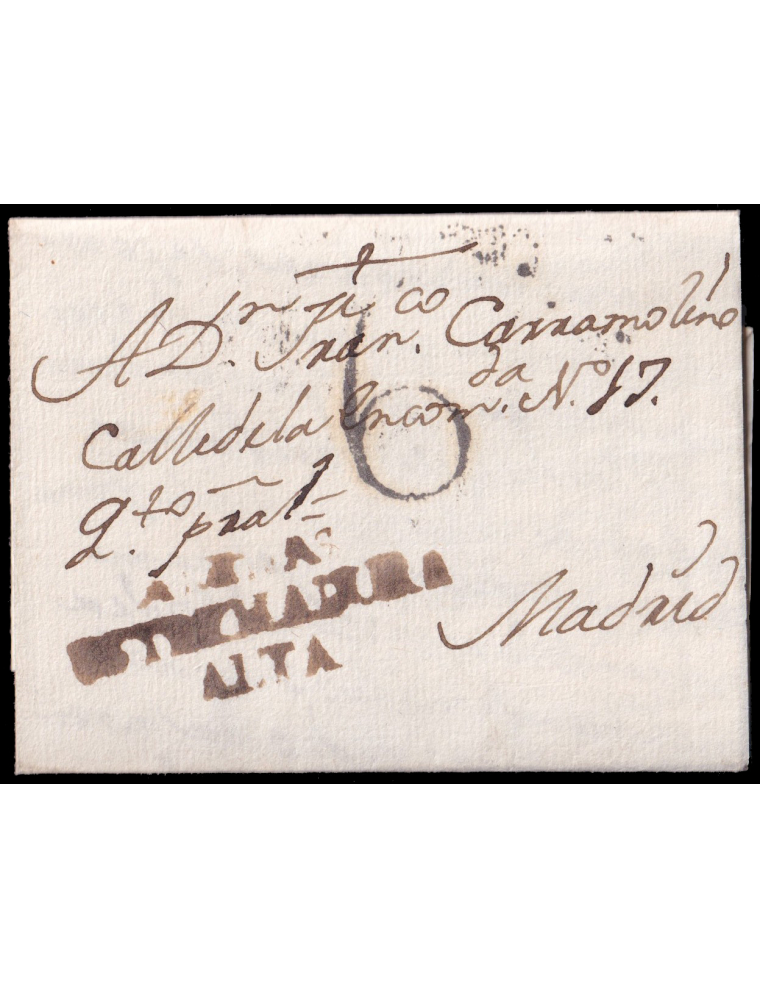 A Dn. Franco. Carramolino
6
Calle de la Encomda. No. 17.
qto. pral
ESTREMADURA
ALTA
Madrid